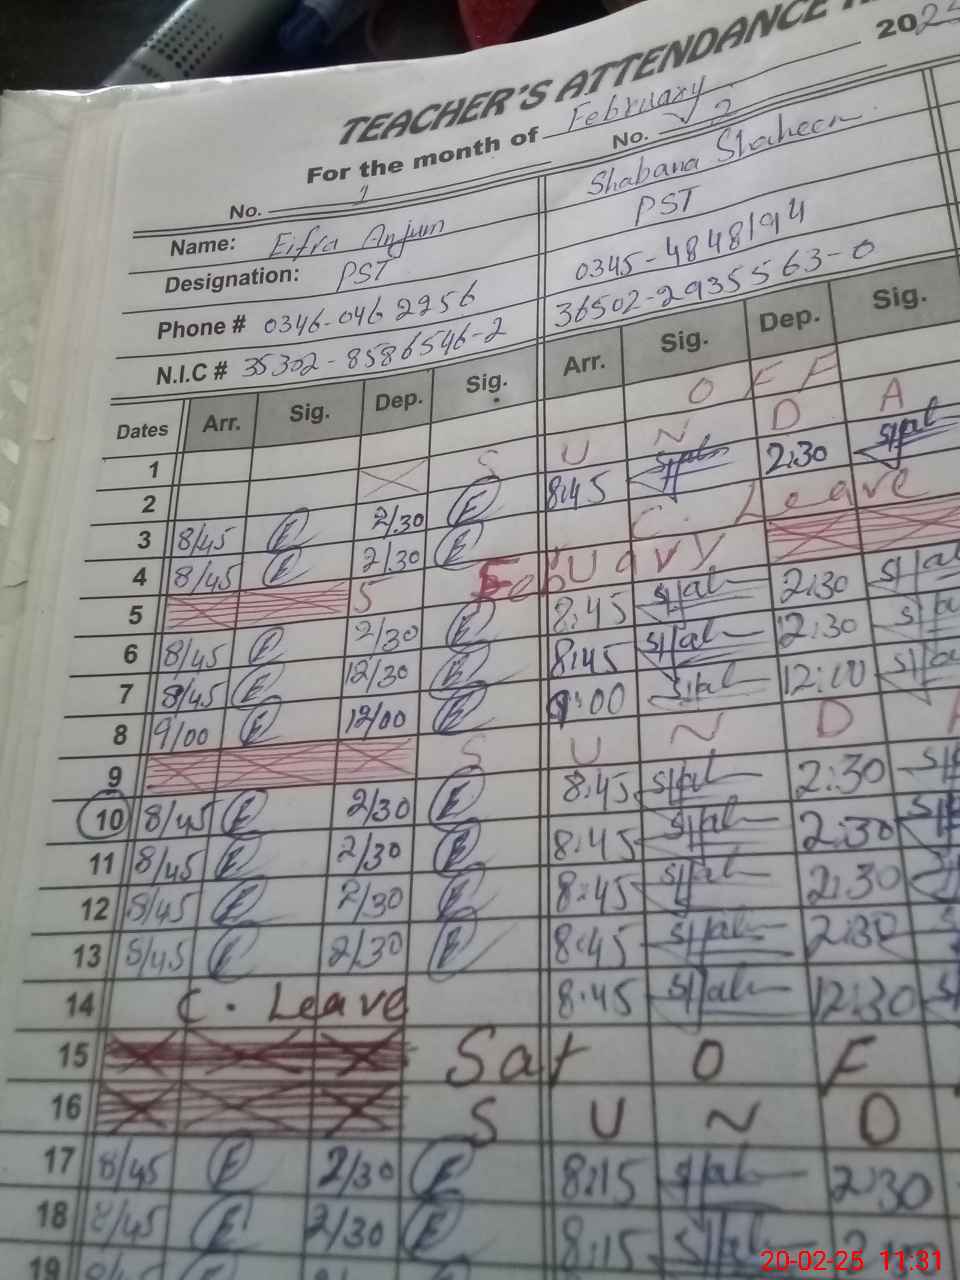 TEACHER'S ATTENDANCE
For the month of February 20
No. 1 No. 2
Name: Eifra Anjum Shabana Shaheen
Designation: PST PST
Phone # 0346-046 2256 0345-4848194
N.I.C # 35302-8586546-2 36502-2935563-0
Dates Arr. Sig. Dep. Sig. Arr. Sig. Dep. Sig.
1 O F F
2 S U N D A
3 8/45 E 2/30 E 8:45 2:30
4 8/45 E 2/30 E C. Leave
5 5 February
6 8/45 E 2/30 E 8:45 2:30
7 8/45 E 12/30 E 8:45 12:30
8 9/00 E 12/00 E 9:00 12:00
9 S U N D A
10 8/45 E 2/30 E 8:45 2:30
11 8/45 E 2/30 E 8:45 2:30
12 8/45 E 2/30 E 8:45 2:30
13 8/45 E 2/30 E 8:45 2:30
14 C. Leave 8:45 12:30
15 Sat O F
16 S U N D
17 8/45 E 2/30 E 8:15 2:30
18 8/45 E 2/30 E 8:15
19
20-02-25 11:31